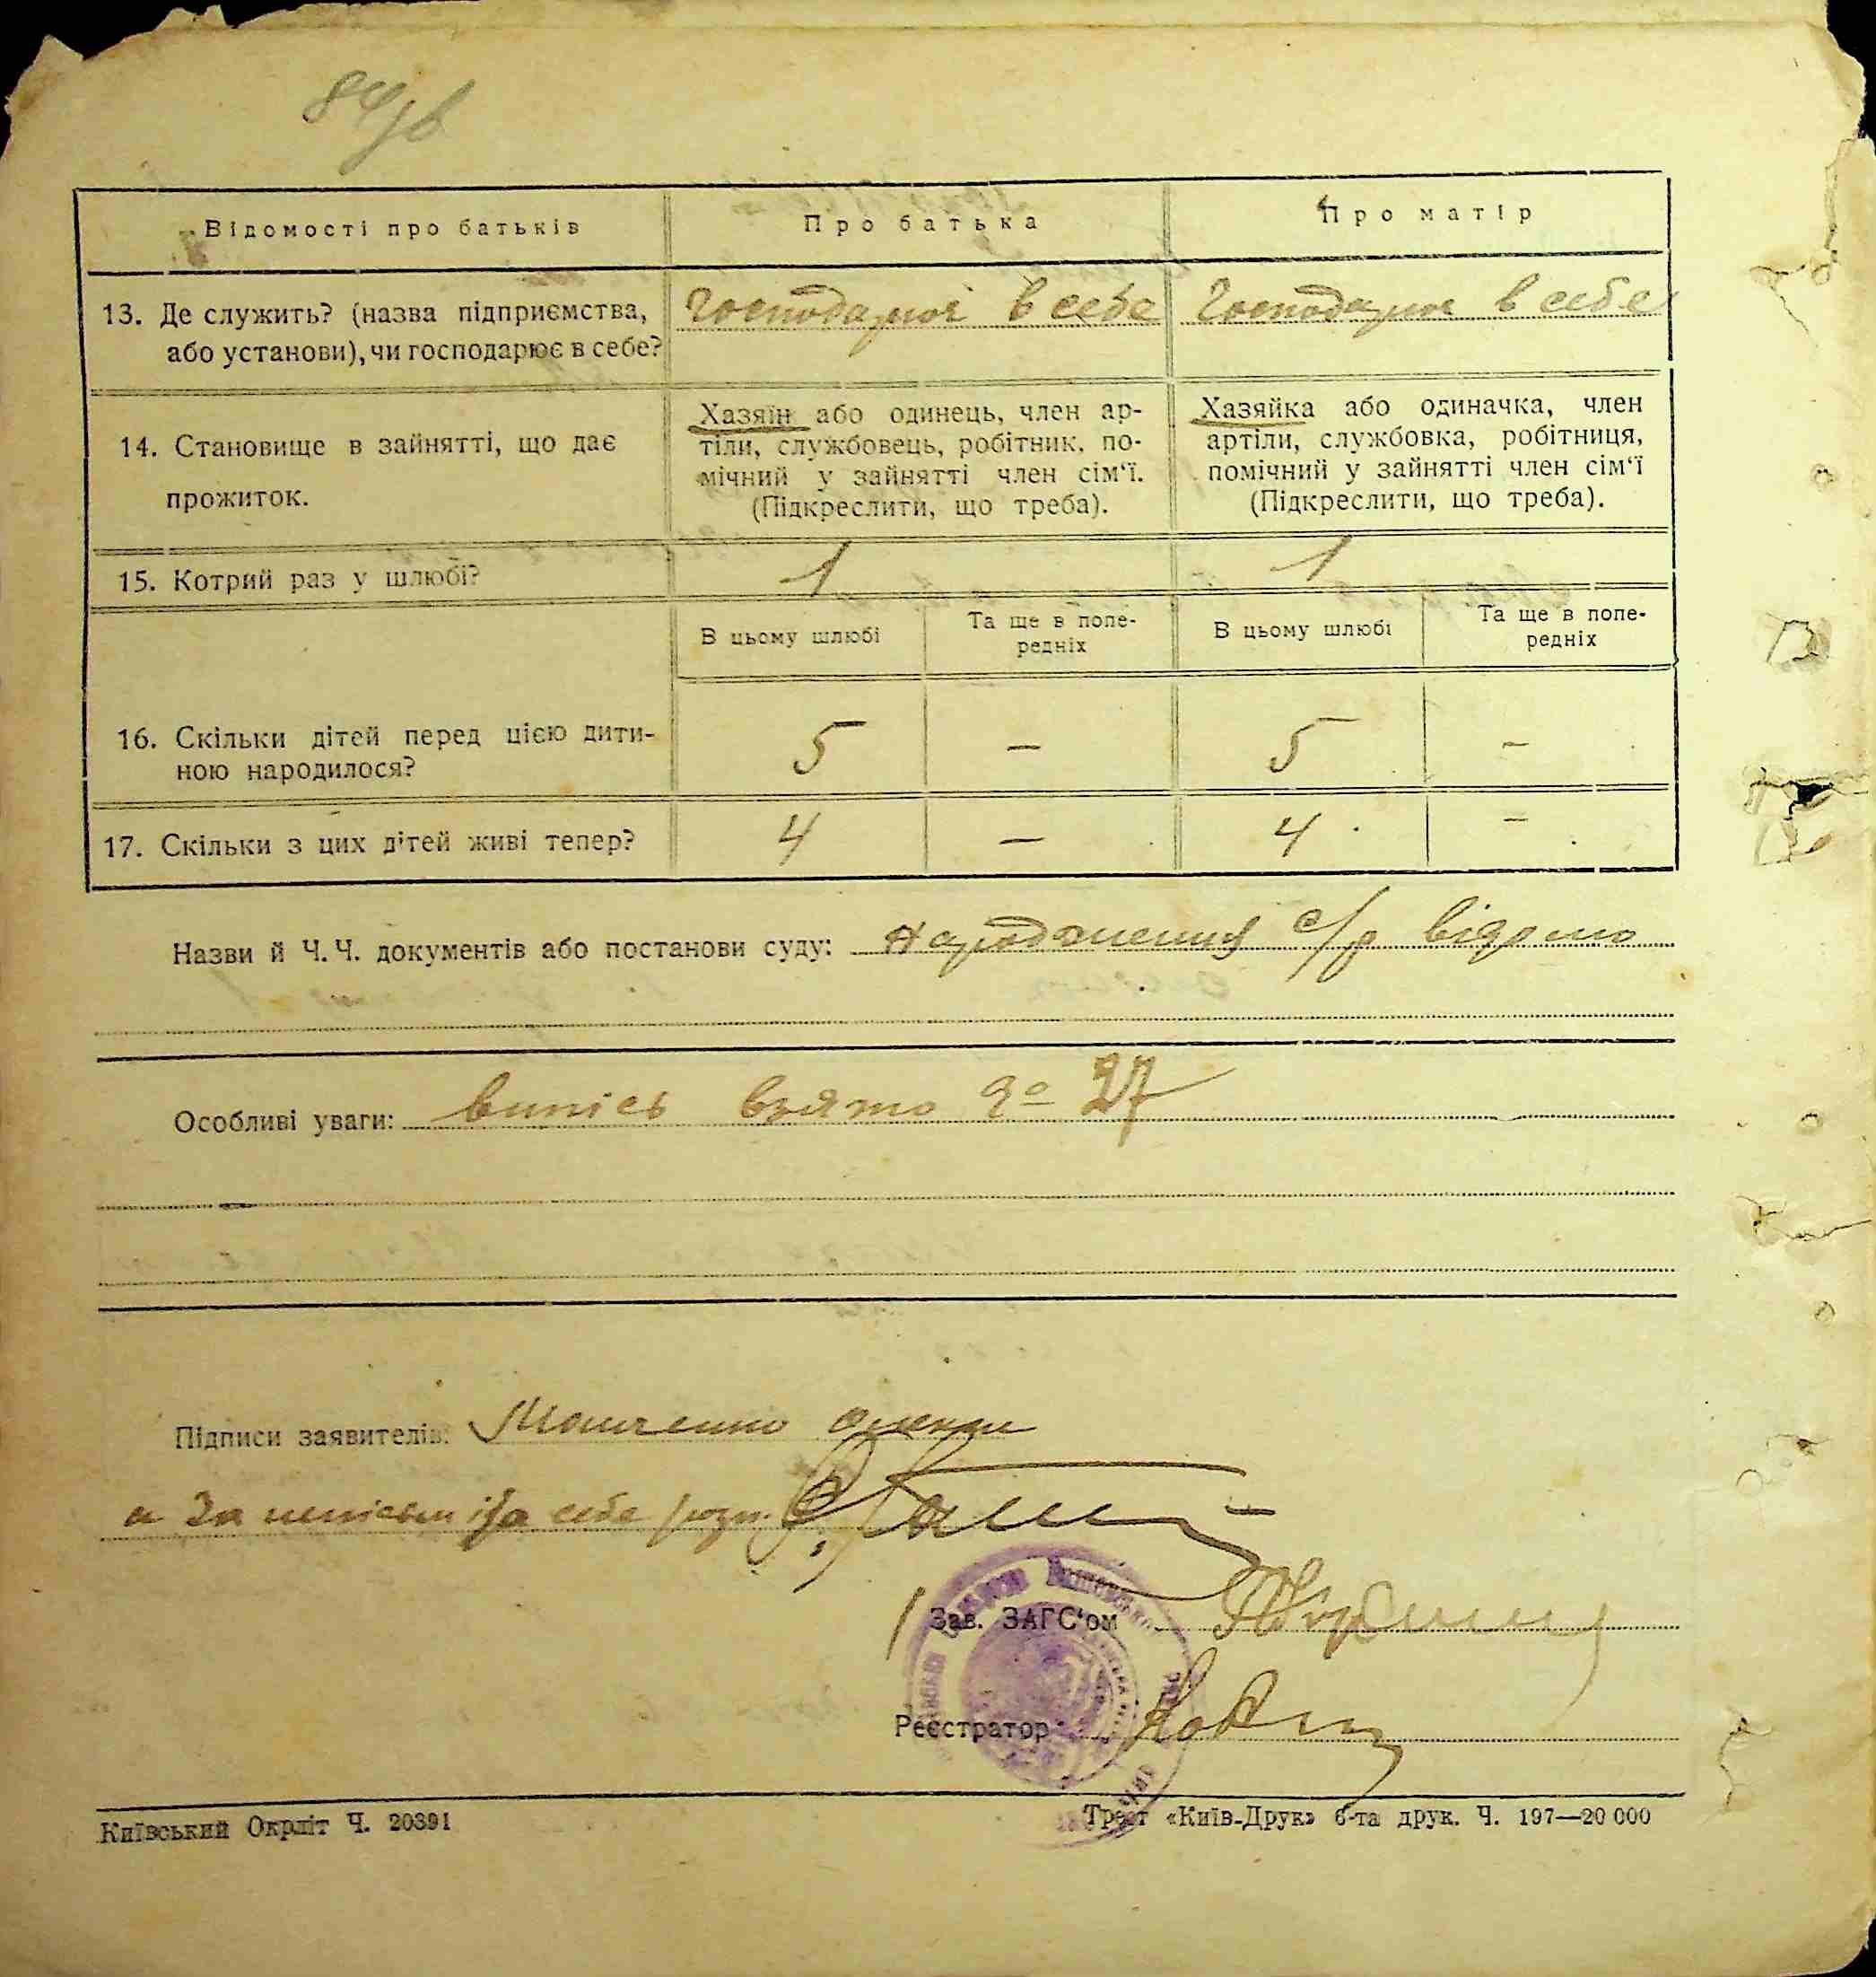 84/зв
Відомості про батьків
Про батька
Про матір
13. Де служить? (назва підприємства,
або установи), чи господарює в себе?
Господарює в себе
Господарює в себе
14. Становище в зайнятті, що дає
прожиток.
Хазяїн або одинець, член ар-
тіли, службовець, робітник, по-
мічний у зайнятті член сім'ї.
(Підкреслити, що треба).
Хазяйка або одиначка, член
артіли, службовка, робітниця,
помічний у зайнятті член сім'ї
(Підкреслити, що треба).
15. Котрий раз у шлюбі?
1
1
В цьому шлюбі
Та ще в попе-
редніх
В цьому шлюбі
Та ще в попе-
редніх
16. Скільки дітей перед цією дити-
ною народилося?
5
—
5
—
17. Скільки з цих дітей живі тепер?
4
—
4
—
Назви й Ч. Ч. документів або постанови суду: народження с/р відомо
Особливі уваги: випісь взято 27
Підписи заявителів:
а за себе
Зав. ЗАГС'ом
Реєстратор
Київський Окрліт Ч. 20391
Трест «Київ-Друк» 6-та друк. Ч. 197—20 000